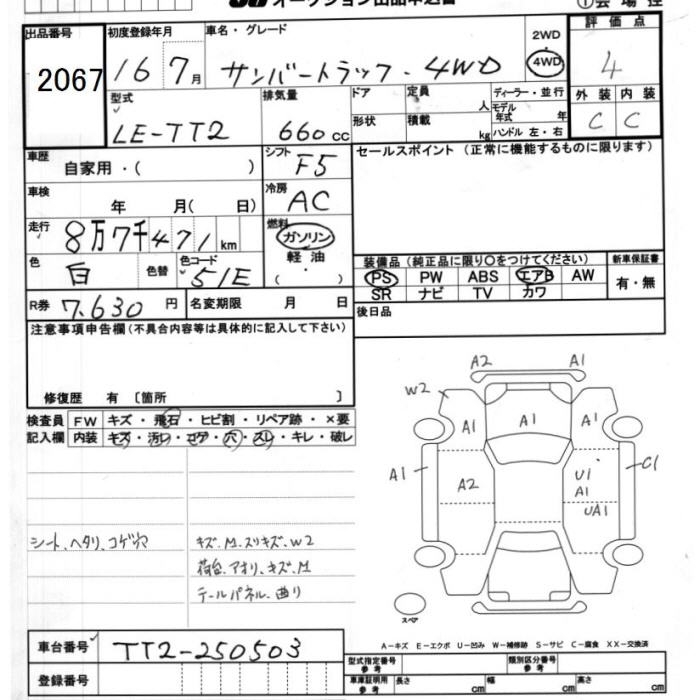 オークション出品申込書
①会場控
出品番号 初度登録年月 車名・グレード 2WD 評価点
2067 16 7月 サンバートラック・4WD 4WD 4
型式 排気量 ドア 定員 人 ディーラー・並行 外装 内装
LE-TT2 660cc 形状 積載 kg モデル年式 年 ハンドル 左・右 C C
車歴 自家用・( ) シフト F5 セールスポイント (正常に機能するものに限ります)
車検 年 月( 日) 冷房 AC
走行 8万7千471km 燃料 ガソリン
軽油
( ・ )
色 白 色替 色コード 51E
装備品 (純正品に限り○をつけてください) 新車保証書
PS PW ABS エアB AW 有・無
SR ナビ TV カワ
R券 7,630円 名変期限 月 日 後日品
注意事項申告欄(不具合内容等は具体的に記入して下さい)
修復歴 有 〔箇所 〕
検査員 FW キズ・飛石・ヒビ割・リペア跡・×要
記入欄 内装 キズ・汚レ・コゲ・穴・スレ・キレ・破レ
シート、ヘタリ、コゲ穴 キズ.M.スリキズ.W2
荷台.アオリ.キズ.M
テールパネル.曲り
A2 A1
W2
A1 A1 A1
A1 A2 U1 C1
A1
UA1
スペア
A-キズ E-エクボ U-凹み W-補修跡 S-サビ C-腐食 XX-交換済
車台番号 TT2-250503
登録番号
型式指定番号 参考 類別区分番号 参考
車庫証明用 参考 長さ cm 幅 cm 高さ cm